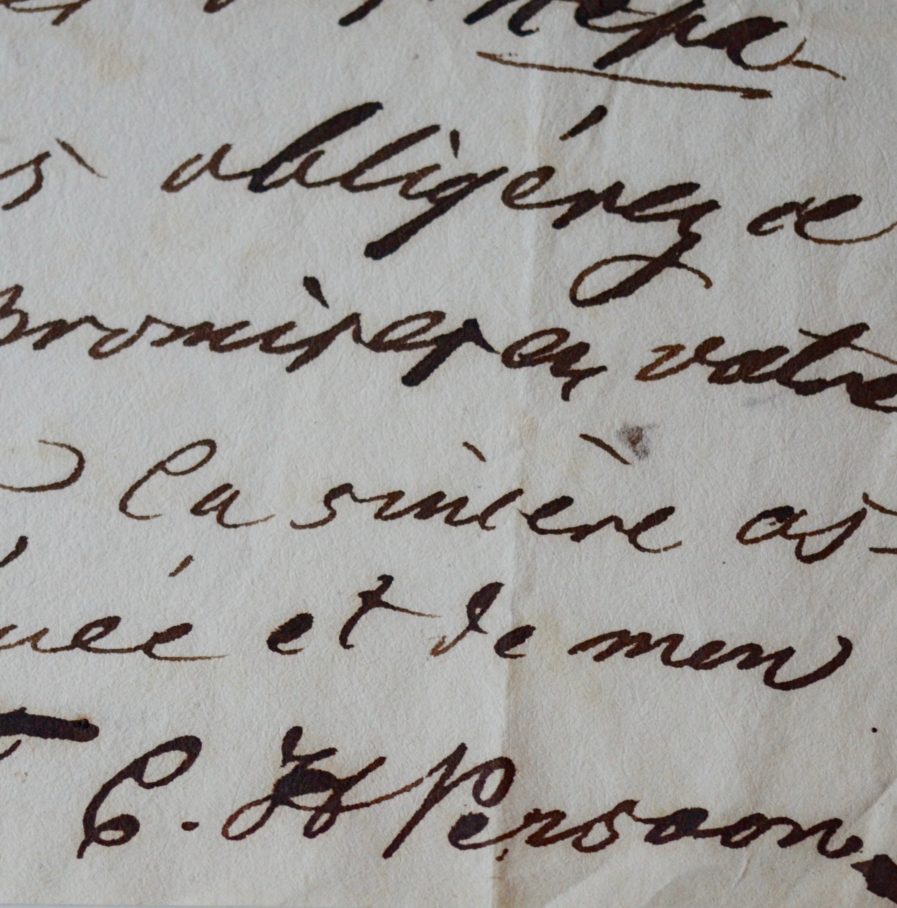 Nepa-
s obligérez de
promiseren votre
la sincère as-
uée et de mon
C. H Persoon.